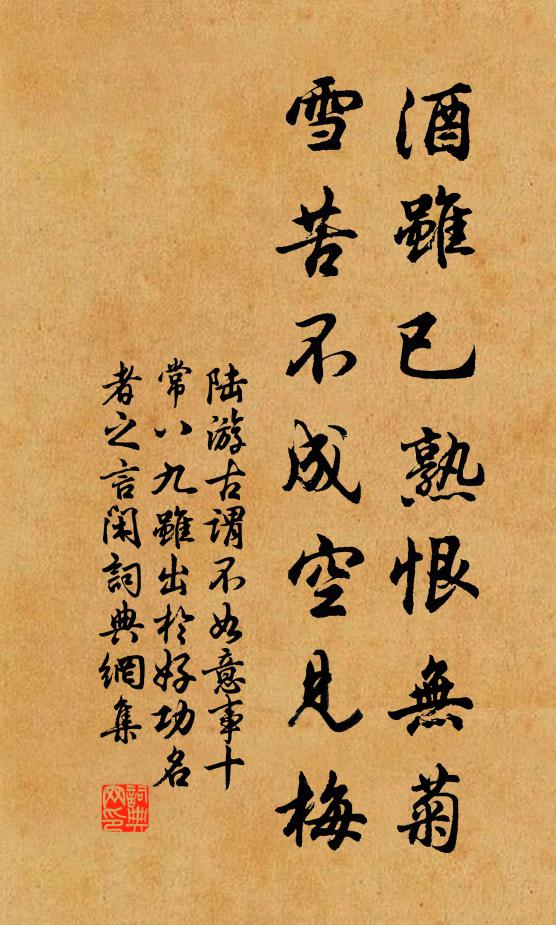 酒雖已熟恨無菊
雪苦不成空見梅
陆游古謂不如意事十
常八九雖出於好功名
者之言閑詞典網集
詞典
网印